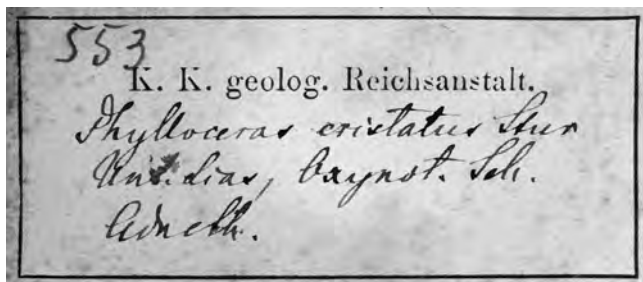 553
K. K. geolog. Reichsanstalt.
Phylloceras cristatus Stur
Unt. Lias, Oxynot. Sch.
Adneth.